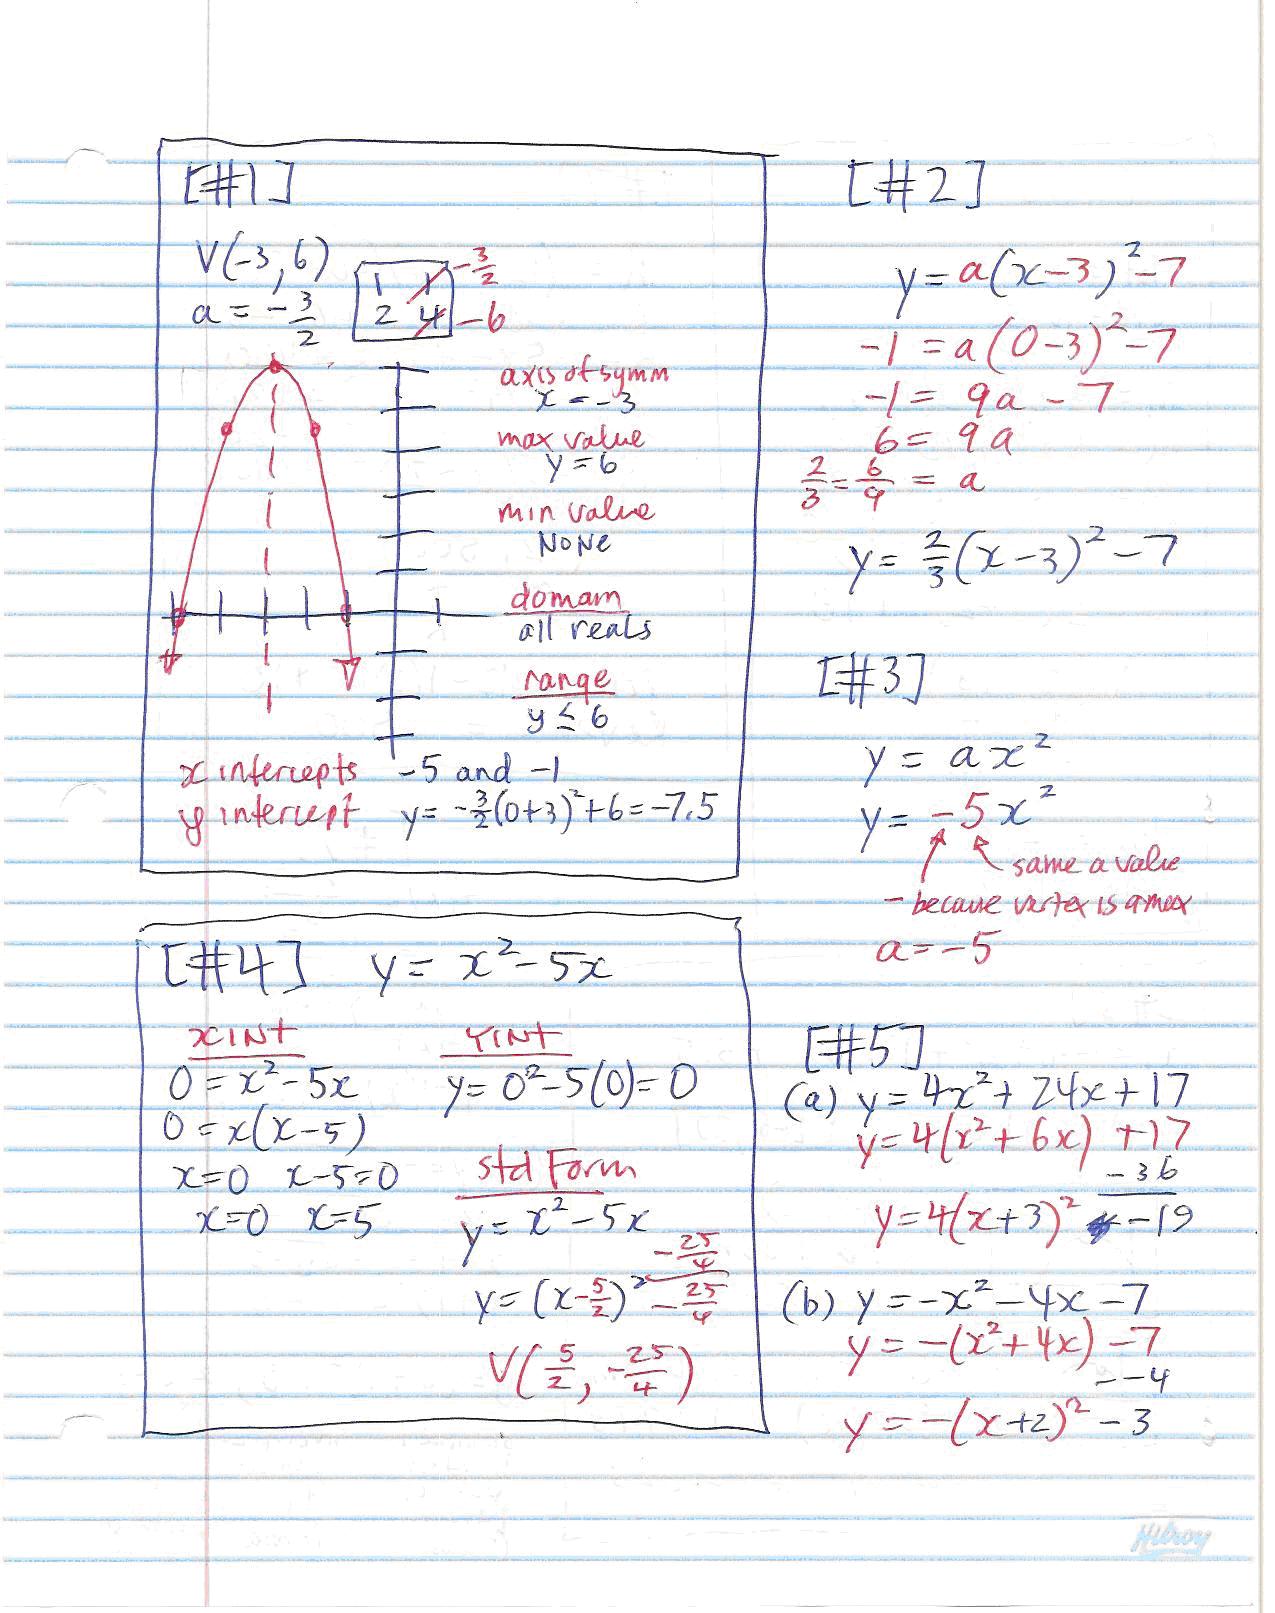 [#1]
V(-3, 6)
a = -3/2
1 1 -3/2
2 4 -6
axis of symm
x = -3
max value
y = 6
min value
NONE
domain
all reals
range
y ≤ 6
x intercepts -5 and -1
y intercept y = -3/2(0+3)²+6 = -7.5
[#2]
y = a(x-3)²-7
-1 = a(0-3)²-7
-1 = 9a - 7
6 = 9a
2/3 = 6/9 = a
y = 2/3(x-3)²-7
[#3]
y = ax²
y = -5x²
same a value
- because vertex is a max
a = -5
[#4] y = x²-5x
x INT
0 = x²-5x
0 = x(x-5)
x=0 x-5=0
x=0 x=5
YINT
y = 0²-5(0) = 0
std Form
y = x²-5x
-25/4
y = (x-5/2)² -25/4
V(5/2, -25/4)
[#5]
(a) y = 4x²+24x+17
y = 4(x²+6x) +17
-36
y = 4(x+3)² -19
(b) y = -x²-4x-7
y = -(x²+4x) -7
--4
y = -(x+2)² -3
Hilroy